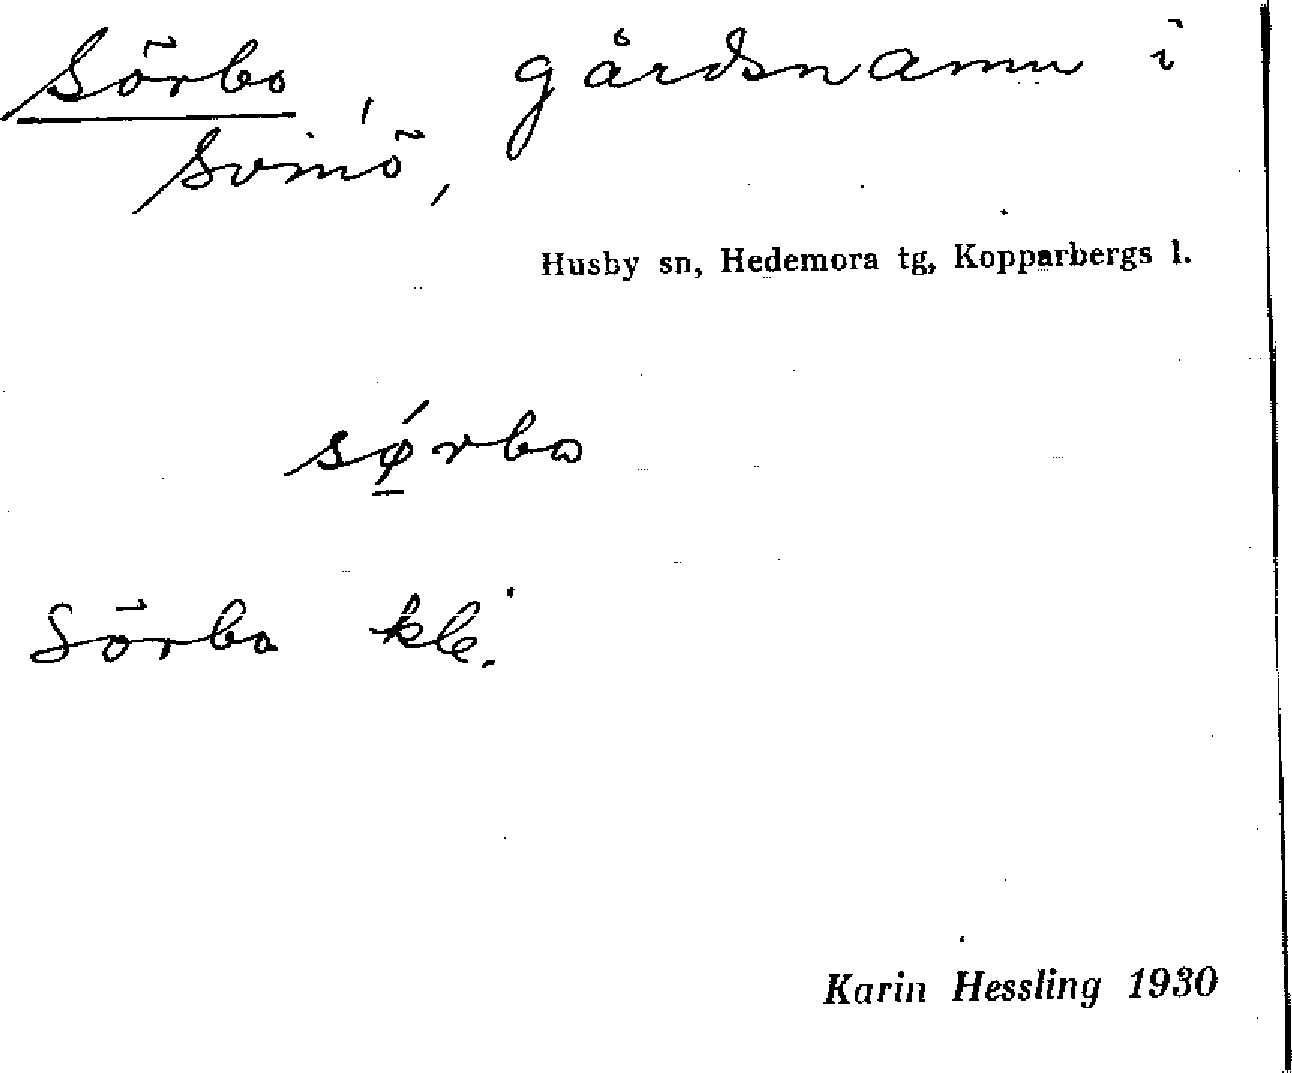 Sörbo, gårdsnamn i
Svinö,
Husby sn, Hedemora tg, Kopparbergs l.
sǿrbo
Sörbo kle.
Karin Hessling 1930